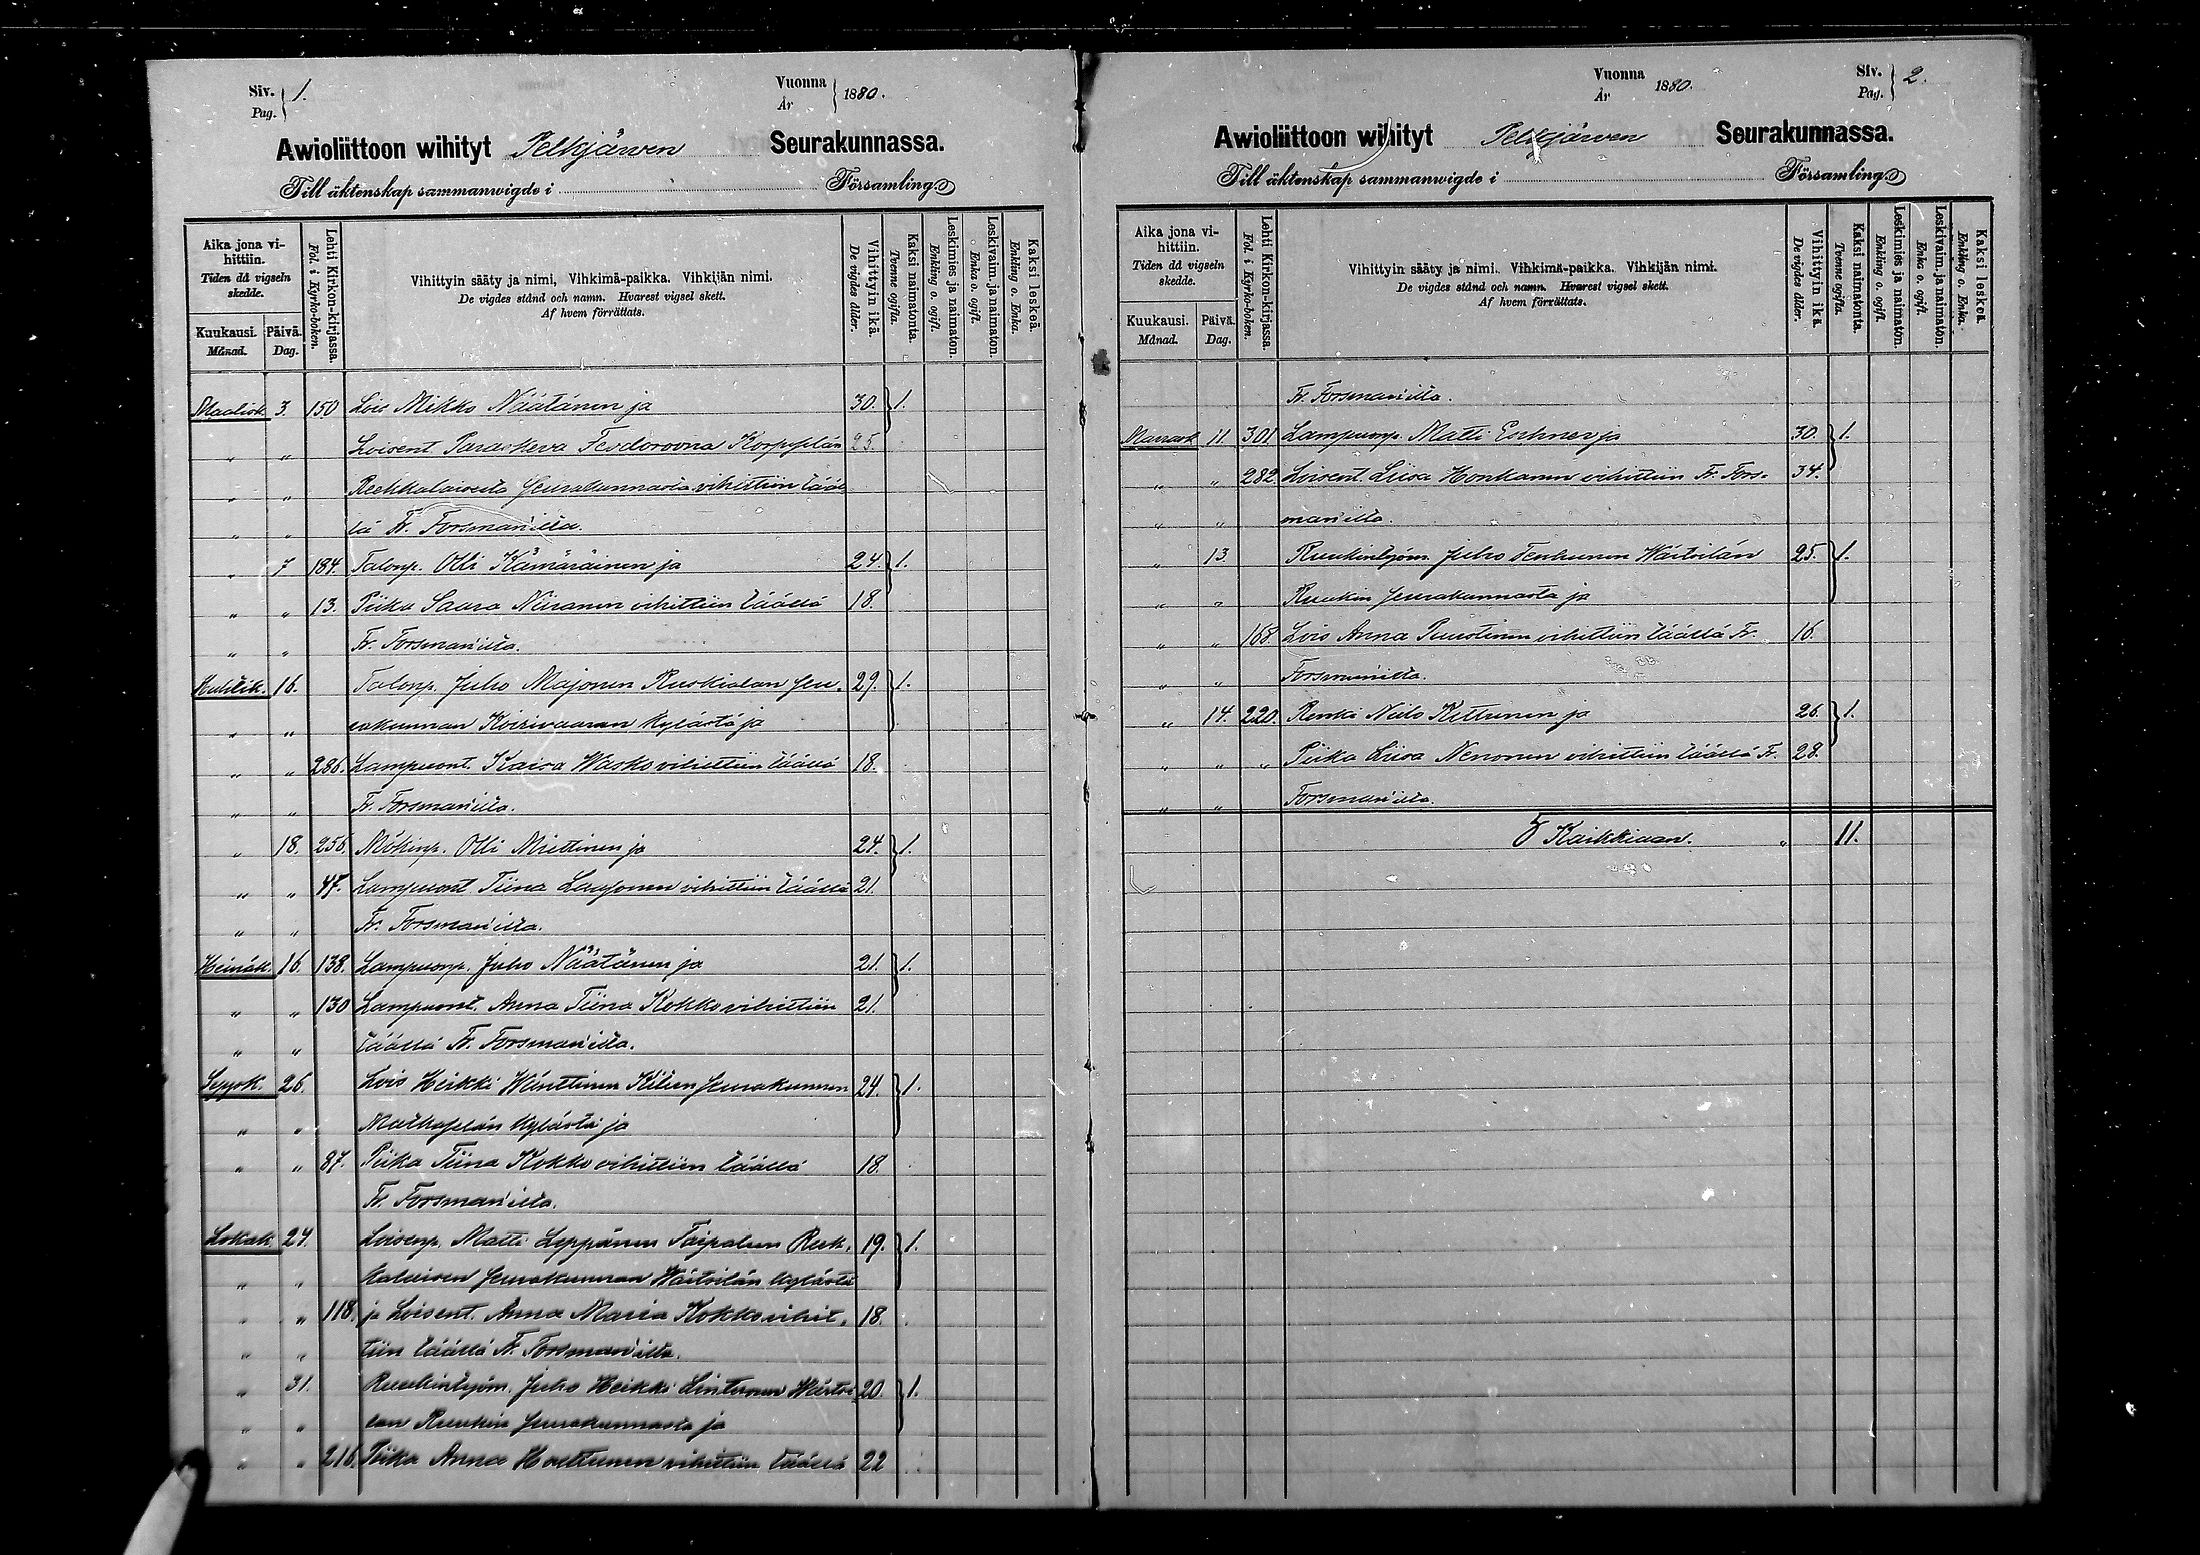 Siv. Pag. 1.
Vuonna År 1880.
Awioliittoon wihityt Pelkjärwen Seurakunnassa.
Till äktenskap sammanwigde i Församling.
Aika jona vihittiin. Tiden då vigseln skedde.
Kuukausi. Månad.
Päivä. Dag.
Lehti Kirkon-kirjassa. Fol. i Kyrko-boken.
Vihittyin sääty ja nimi, Vihkimä-paikka. Vihkijän nimi.
De vigdes stånd och namn. Hvarest vigsel skett.
Af hvem förrättats.
Vihittyin ikä. De vigdes ålder.
Kaksi naimatonta. Tvenne ogifta.
Leskimies ja naimaton. Enkling o. ogift.
Leskivaim. ja naimaton. Enka o. ogift.
Kaksi leskeä. Enkling o. Enka.
Maalisk. 3. 150 Lois Mikko Näätänen ja 30. 1.
" " Loisent. Paraskeva Feodorovna Korpiselän 25.
" " Reekkalaiselta Seurakunnasta vihittiin tääl
" " lä Fr. Forsman'illa.
" 7 184. Talonp. Olli Kämäräinen ja 24. 1.
" " 13. Piika Saara Niiranen vihittiin täällä 18.
" " Fr. Forsman'illa.
Huhtik. 16. Talonp. Juho Majonen Ruskialan Seu- 29. 1.
" " rakunnan Koirivaaran kylästä ja
" " 286. Lampuont. Kaisa Wasko vihittiin täällä 18.
" " Fr. Forsman'illa.
" 18. 256. Mökinp. Olli Miettinen ja 24. 1.
" " 47. Lampuont Tiina Laasonen vihittiin täällä 21.
" " Fr. Forsman'illa.
Heinäk. 16. 138. Lampuonp. Juho Näätänen ja 21. 1.
" " 130 Lampuont. Anna Tiina Kokko vihittiin 21.
" " täällä Fr. Forsman'illa.
Syysk. 26. Lois Heikki Wänttinen Kiteen Seurakunnan 24. 1.
" " Matkaselän kylästä ja
" " 87. Piika Tiina Kokko vihittiin täällä 18.
Fr. Forsman'illa.
Lokak. 24. Loisenp. Matti Leppänen Taipaleen Reek- 19. 1.
" " kalaisen Seurakunnan Wärtsilän kylästä
" " 118. ja Loisent. Anna Maria Kokko vihit- 18.
" " tiin täällä Fr. Forsman'illa.
" 31. Ruukintyöm. Juho Heikki Lintunen Wärtsi- 20. 1.
" " län Ruukin Seurakunnasta ja
" " 216. Piika Anna Hoettunen vihittiin täällä 22
Vuonna År 1880.
Siv. Pag. 2.
Awioliittoon wihityt Pelkjärwen Seurakunnassa.
Till äktenskap sammanwigde i Församling.
Aika jona vihittiin. Tiden då vigseln skedde.
Kuukausi. Månad.
Päivä. Dag.
Lehti Kirkon-kirjassa. Fol. i Kyrko-boken.
Vihittyin sääty ja nimi. Vihkimä-paikka. Vihkijän nimi.
De vigdes stånd och namn. Hvarest vigsel skett.
Af hvem förrättats.
Vihittyin ikä. De vigdes ålder.
Kaksi naimatonta. Tvenne ogifta.
Leskimies ja naimaton. Enkling o. ogift.
Leskivaim. ja naimaton. Enka o. ogift.
Kaksi leskeä. Enkling o. Enka.
Fr. Forsman'illa.
Marrask 11. 301 Lampuonp. Matti Eschner ja 30. 1.
" " 282 Loisent. Liisa Honkanen vihittiin Fr. Fors- 34.
" " man'illa.
" 13. Ruukintyöm. Juho Tenhunen Wärtsilän 25. 1.
" " Ruukin Seurakunnasta ja
" " 168. Lois Anna Puustinen vihittiin täällä Fr. 16.
" " Forsman'illa.
" 14. 220. Renki Niilo Kettunen ja 26. 1.
" " " Piika Liisa Nenonen vihittiin täällä Fr. 28.
" " Forsman'illa.
Kaikkiaan. " 11.